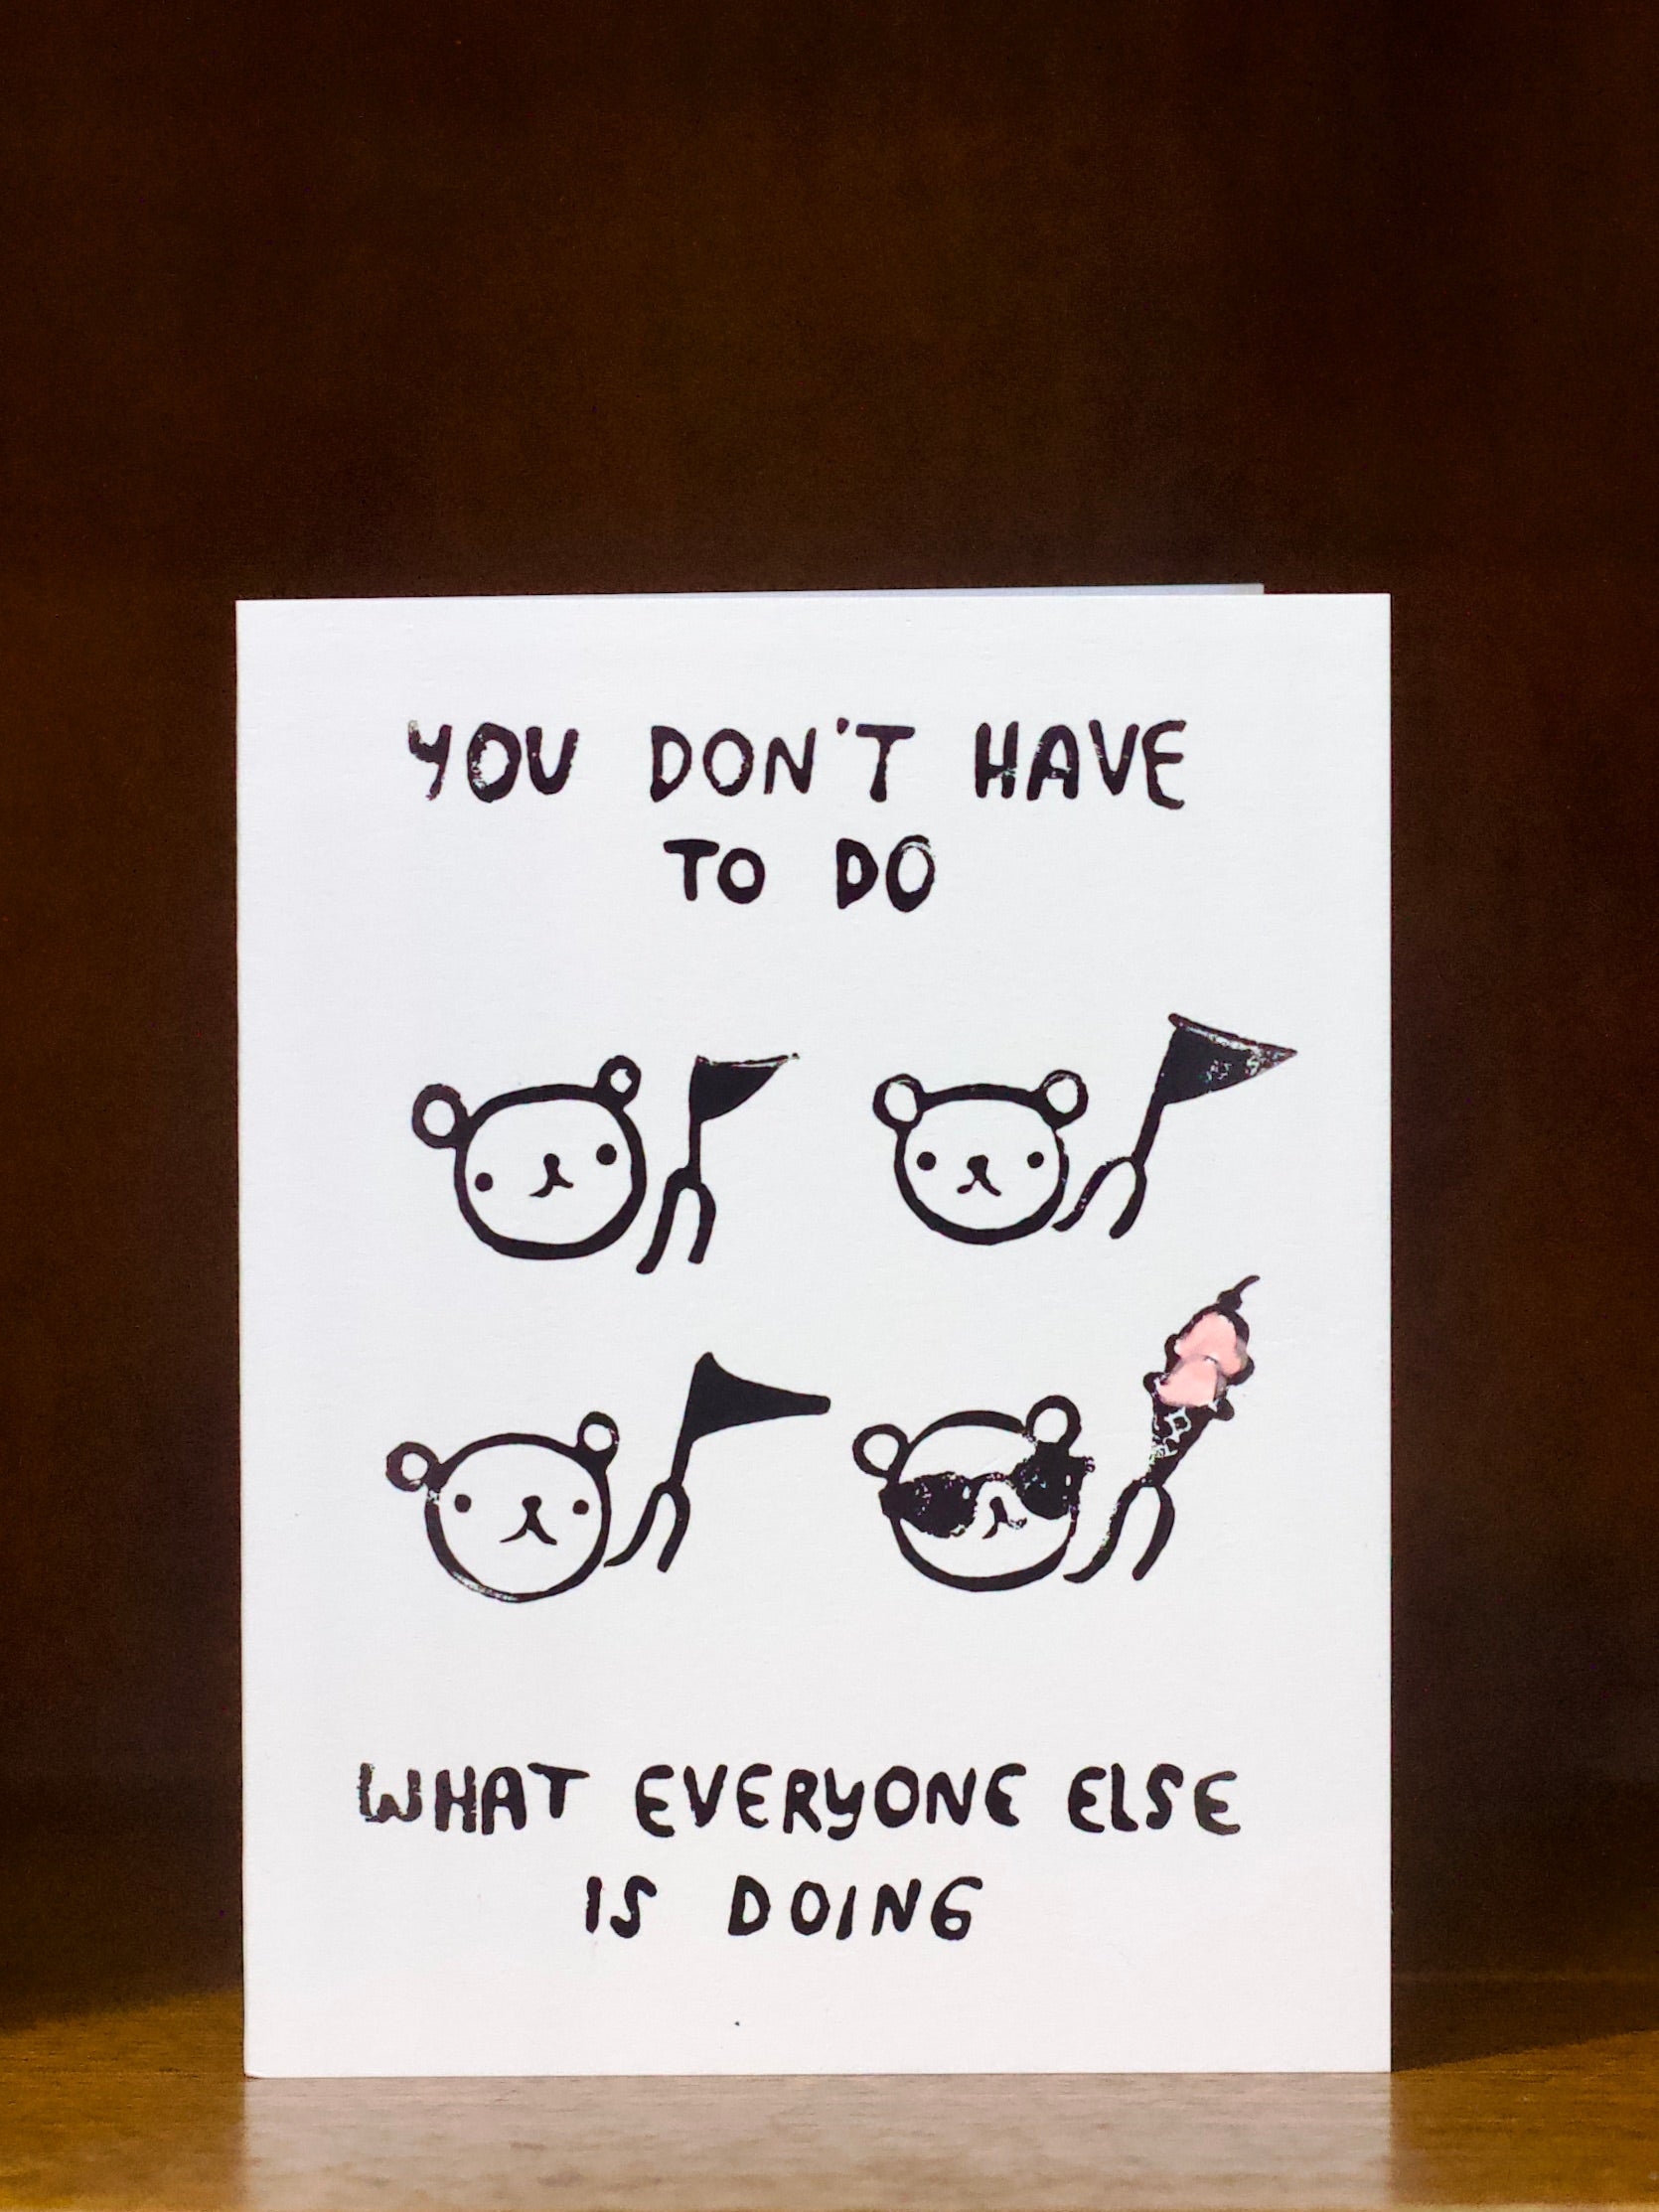 YOU DON'T HAVE
TO DO
WHAT EVERYONE ELSE
IS DOING